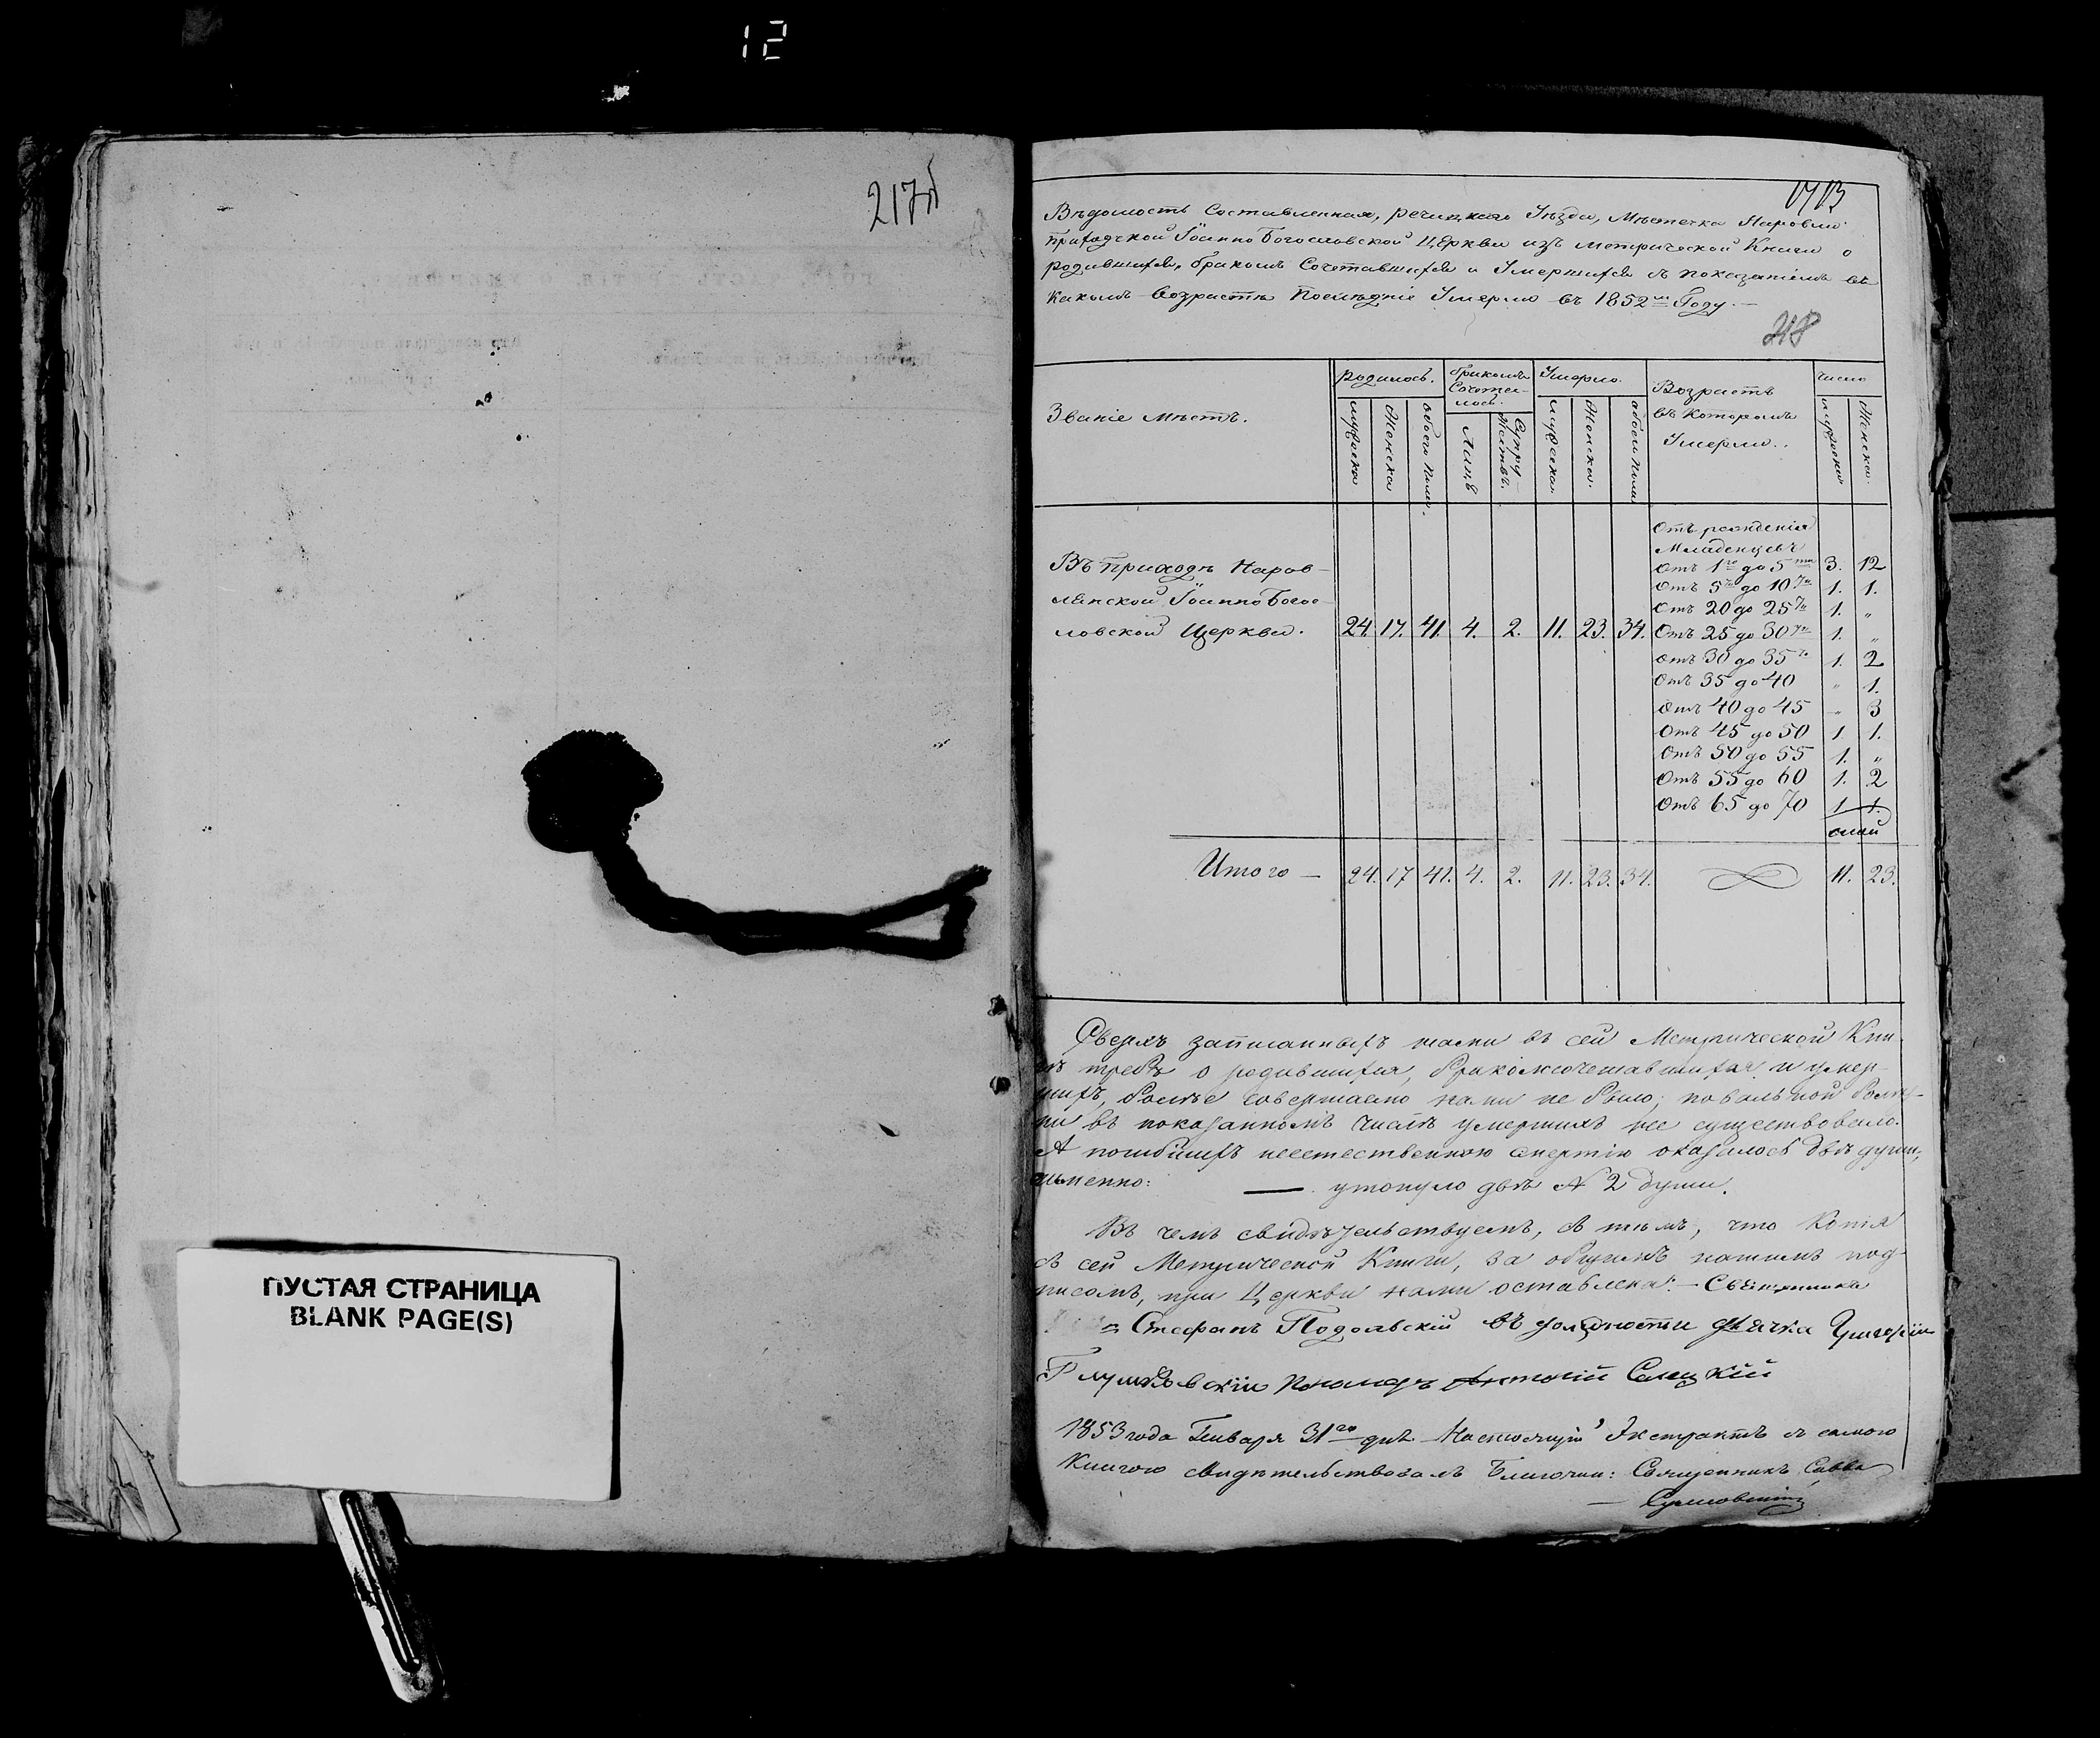 12
217
ПУСТАЯ СТРАНИЦА
BLANK PAGE(S)
Вѣдомость Составленная, речицкаго Уѣзда, Мѣстечка Наровли
приходской Іоанно Богословской Церкви изъ метрической Книги о
родившихся, бракомъ Сочетавшихся и Умершихся съ показаніемъ въ
какомъ возрастѣ послѣдніе Умерло въ 1852 Году. —
218
Званіе мѣстъ.
родилось.
бракомъ Сочета-
лось.
Умерло.
Возрастъ
въ Которомъ
Умерли.
число
мужеска
Женска
обоего пола.
Лицъ
Супру-
жествъ.
мужеска.
Женска.
обоего пола
мужеска
Женска.
Въ приходѣ Наров-
лянской Іоанно Богос-
ловской Церкви. 24. 17. 41. 4. 2. 11. 23. 34.
Отъ рожденія
Младенцевъ
Отъ 1го до 5ти 3. 12
Отъ 5ти до 10ти 1. 1.
Отъ 20 до 25ти 1. „
Отъ 25 до 30ти 1. „
Отъ 30 до 35ти 1. 2
Отъ 35 до 40 „ 1.
Отъ 40 до 45 „ 3
Отъ 45 до 50 1 1.
Отъ 50 до 55 1. „
Отъ 55 до 60 1. 2
Отъ 65 до 70 1 1.
Итого — 24. 17 41. 4. 2. 11. 23. 34. 11. 23.
Сверхъ записанныхъ нами въ сей Метрической Кни-
гѣ требъ о родившихся, бракомсочетавшихся и умер-
шихъ, болѣе совершаемо нами не было; повальной болѣз-
ни въ показанномъ числѣ умершихъ не существовало.
А погибшихъ неестественною смертію оказалось двѣ души,
именно: — утонуло двѣ № 2 души.
Въ чемъ свидѣтельствуемъ, съ тѣмъ, что Копія
съ сей Метрической Книги, за общимъ нашимъ под-
писомъ, при Церкви нами оставлена: — Священника
Стефанъ Подольскій въ должности дьячка Григорій
Глушковскій Пономарь Антоній Слецкій
1853 года Генваря 31го дня Настоящій Экстрактъ съ самою
Книгою свидѣтельствовалъ Благочин: Священникъ Савва